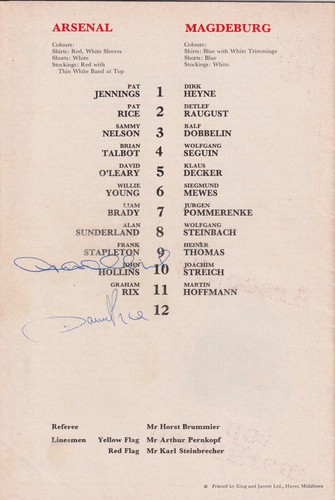 ARSENAL MAGDEBURG
Colours: Colours:
Shirts: Red, White Sleeves Shirts: Blue with White Trimmings
Shorts: White Shorts: Blue
Stockings: Red with Stockings: White.
Thin White Band at Top
PAT DIRK
JENNINGS 1 HEYNE
PAT DETLEF
RICE 2 RAUGUST
SAMMY RALF
NELSON 3 DOBBELIN
BRIAN WOLFGANG
TALBOT 4 SEGUIN
DAVID KLAUS
O'LEARY 5 DECKER
WILLIE SIEGMUND
YOUNG 6 MEWES
LIAM JURGEN
BRADY 7 POMMERENKE
ALAN WOLFGANG
SUNDERLAND 8 STEINBACH
FRANK HEINER
STAPLETON 9 THOMAS
JOHN JOACHIM
HOLLINS 10 STREICH
GRAHAM MARTIN
RIX 11 HOFFMANN
12
Referee Mr Horst Brummier
Linesmen Yellow Flag Mr Arthur Pernkopf
Red Flag Mr Karl Steinbrecher
© Printed by King and Jarrett Ltd., Hayes, Middlesex